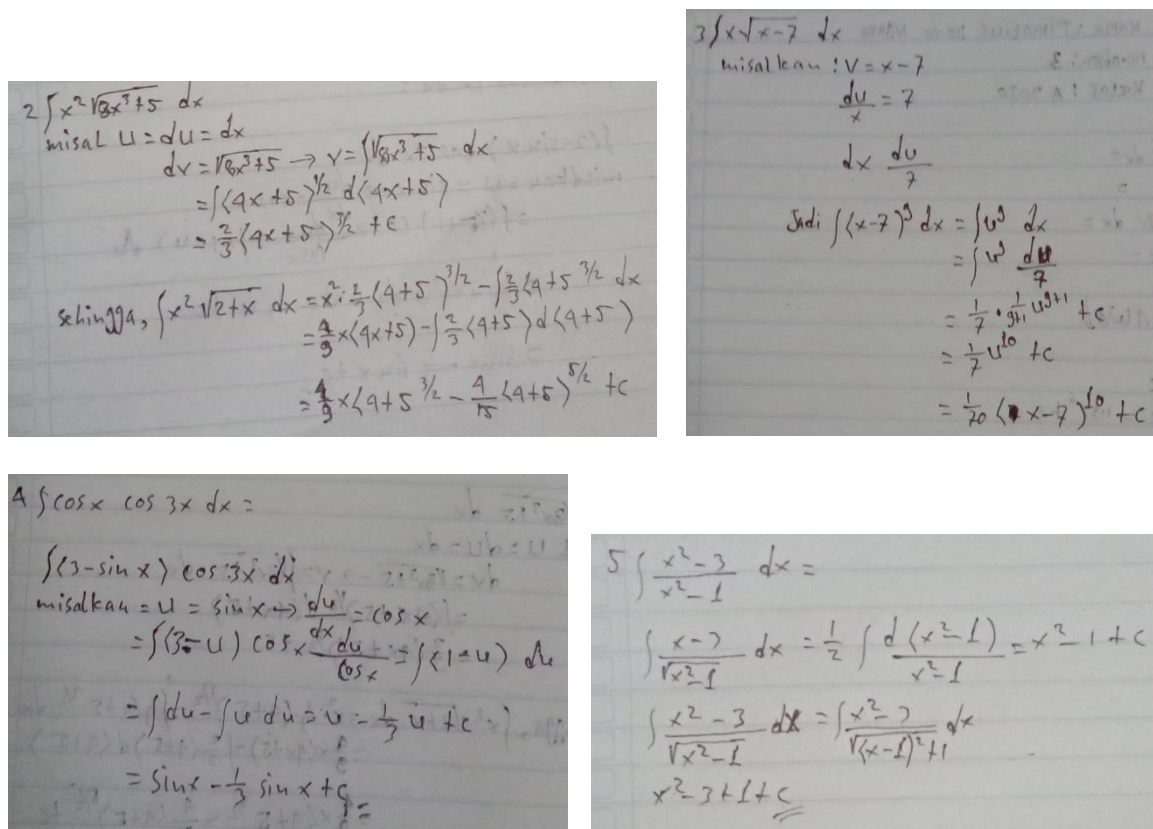 2 ∫x² √8x³+5 dx
misal u = du = dx
dv = √8x³+5 → v = ∫√8x³+5 dx
= ∫(4x+5)^1/2 d(4x+5)
= 2/3 (4x+5)^3/2 + c
sehingga, ∫x² √2+x dx = x² : 2/3 (4+5)^3/2 - ∫2/3 (4+5^3/2 dx
= 4/9 x (4x+5) - ∫2/3 (4+5) d(4+5)
= 4/9 x (4+5^3/2 - 4/15 (4+5)^5/2 + c
3 ∫x√x-7 dx
misalkan : v = x-7
du/x = 7
dx du/7
Jadi ∫(x-7)^9 dx = ∫u^9 dx
= ∫u^9 du/7
= 1/7 · 1/9+1 u^9+1 + c
= 1/7 u^10 + c
= 1/70 (x-7)^10 + c
4 ∫cos x cos 3x dx =
∫(3-sin x) cos 3x dx
misalkan = u = sin x → du/dx = cos x
= ∫(3-u) cos x du/cos x = ∫(1-u) du
= ∫du - ∫u du = u - 1/3 u + c
= sin x - 1/3 sin x + c
5 ∫ x²-3/x²-1 dx =
∫ x-3/√x²-1 dx = 1/2 ∫ d(x²-1)/x²-1 = x²-1 + c
∫ x²-3/√x²-1 dx = ∫ x²-3/√(x-1)²+1 dx
x²-3+1+c